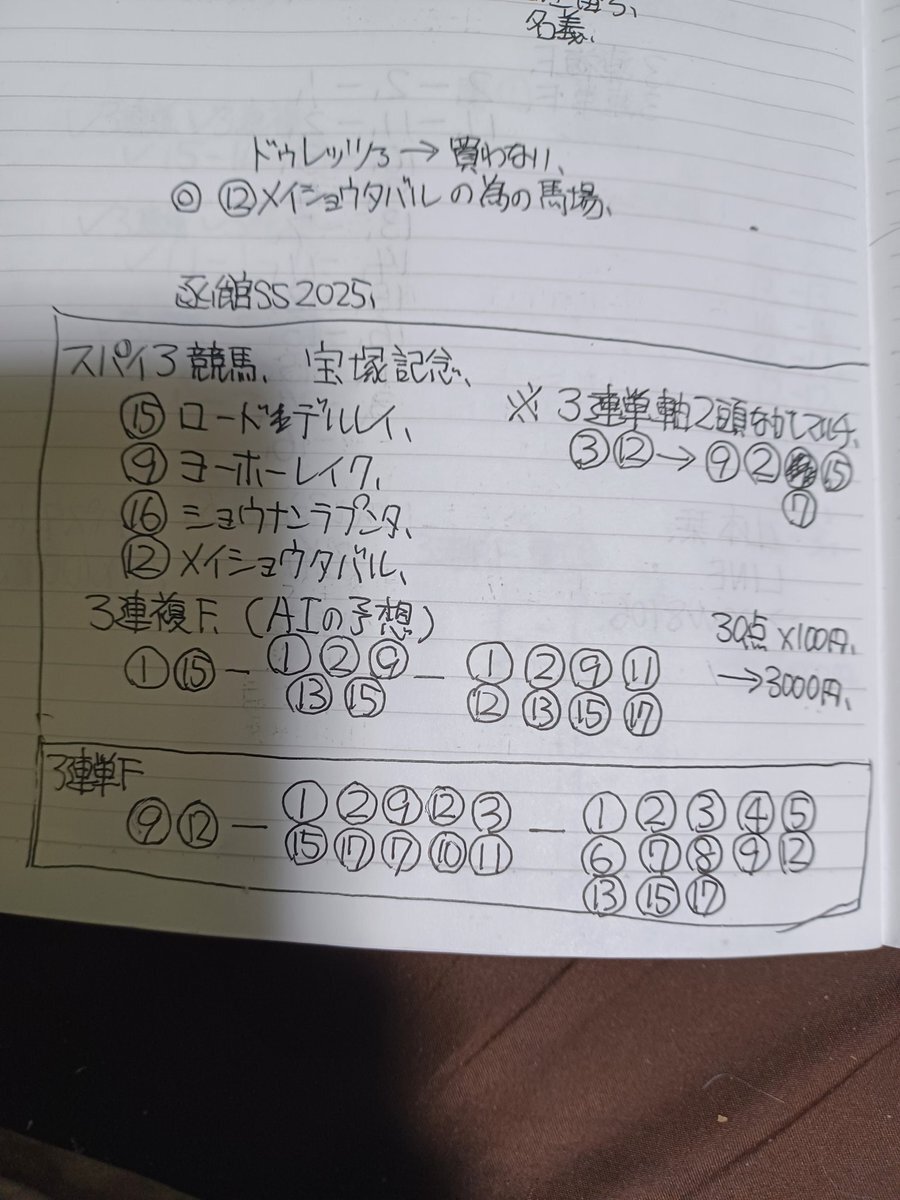 名義、
ドゥレッツァ → 買わない、
◎ ⑫メイショウタバルの為の馬場、
函館SS2025、
スパイ3競馬、宝塚記念、
⑮ ロードデルレイ、
⑨ ヨーホーレイク、
⑯ ショウナンラプンタ、
⑫ メイショウタバル、
※ 3連単軸2頭ながしマルチ、
③⑫→⑨②⑮
⑦
3連複F、(AIの予想)
①⑮－①②⑨－①②⑨⑪
⑬⑮ ⑫⑬⑮⑰
30点×100円、
→3000円、
3連単F
⑨⑫－①②⑨⑫③－①②③④⑤
⑮⑰⑦⑩⑪ ⑥⑦⑧⑨⑫
⑬⑮⑰